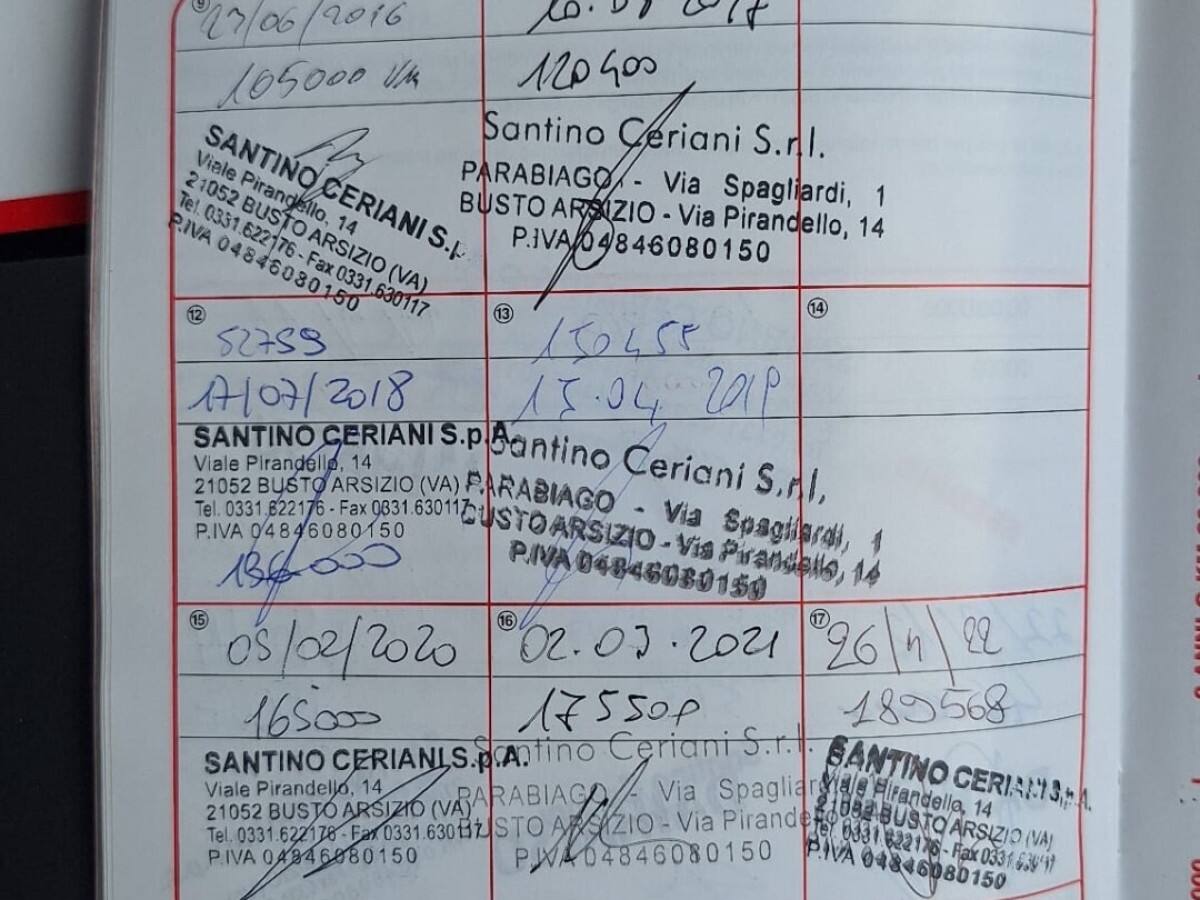 9
27/06/2016
10.07 2017
105000 km
120400
SANTINO CERIANI S.p.
Viale Pirandello, 14
21052 BUSTO ARSIZIO (VA)
Tel. 0331.622176 - Fax 0331.630117
P.IVA 04846080150
Santino Ceriani S.r.l.
PARABIAGO - Via Spagliardi, 1
BUSTO ARSIZIO - Via Pirandello, 14
P.IVA 04846080150
12
52759
17/07/2018
SANTINO CERIANI S.p.A.
Viale Pirandello, 14
21052 BUSTO ARSIZIO (VA)
Tel. 0331.622176 - Fax 0331.630117
P.IVA 04846080150
136000
13
150455
15.04 2019
Santino Ceriani S.r.l.
PARABIAGO - Via Spagliardi, 1
BUSTO ARSIZIO - Via Pirandello, 14
P.IVA 04846080150
14
15
05/02/2020
165000
SANTINO CERIANI S.p.A.
Viale Pirandello, 14
21052 BUSTO ARSIZIO (VA)
Tel. 0331.622176 - Fax 0331.630117
P.IVA 04846080150
16
02.03.2021
175509
Santino Ceriani S.r.l.
PARABIAGO - Via Spagliar
BUSTO ARSIZIO - Via Pirandello
P.IVA 04846080150
17
26/11/22
189568
SANTINO CERIANI S.p.A.
Viale Pirandello, 14
21052 BUSTO ARSIZIO (VA)
Tel. 0331.622176 - Fax 0331.630117
P.IVA 04846080150